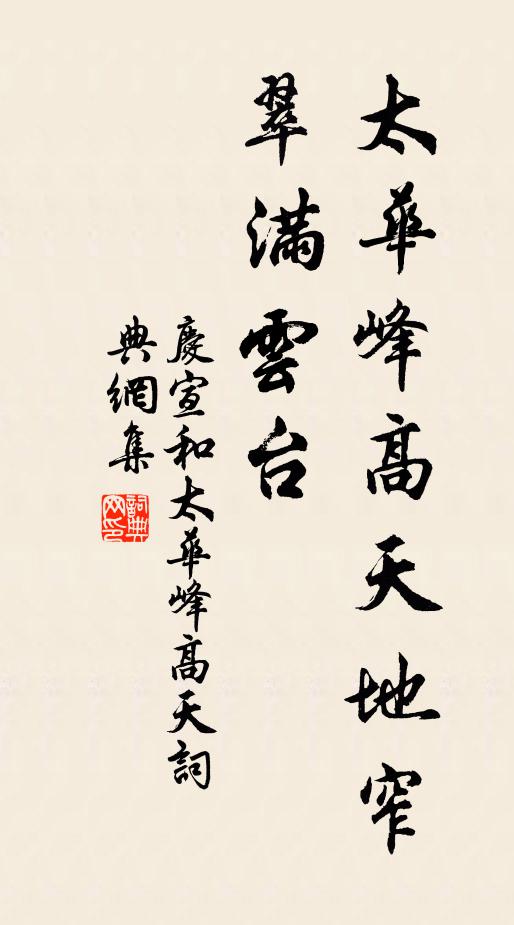 太華峰高天地窄
翠滿雲台
慶宣和太華峰高天詞
典網集
詞典
网印